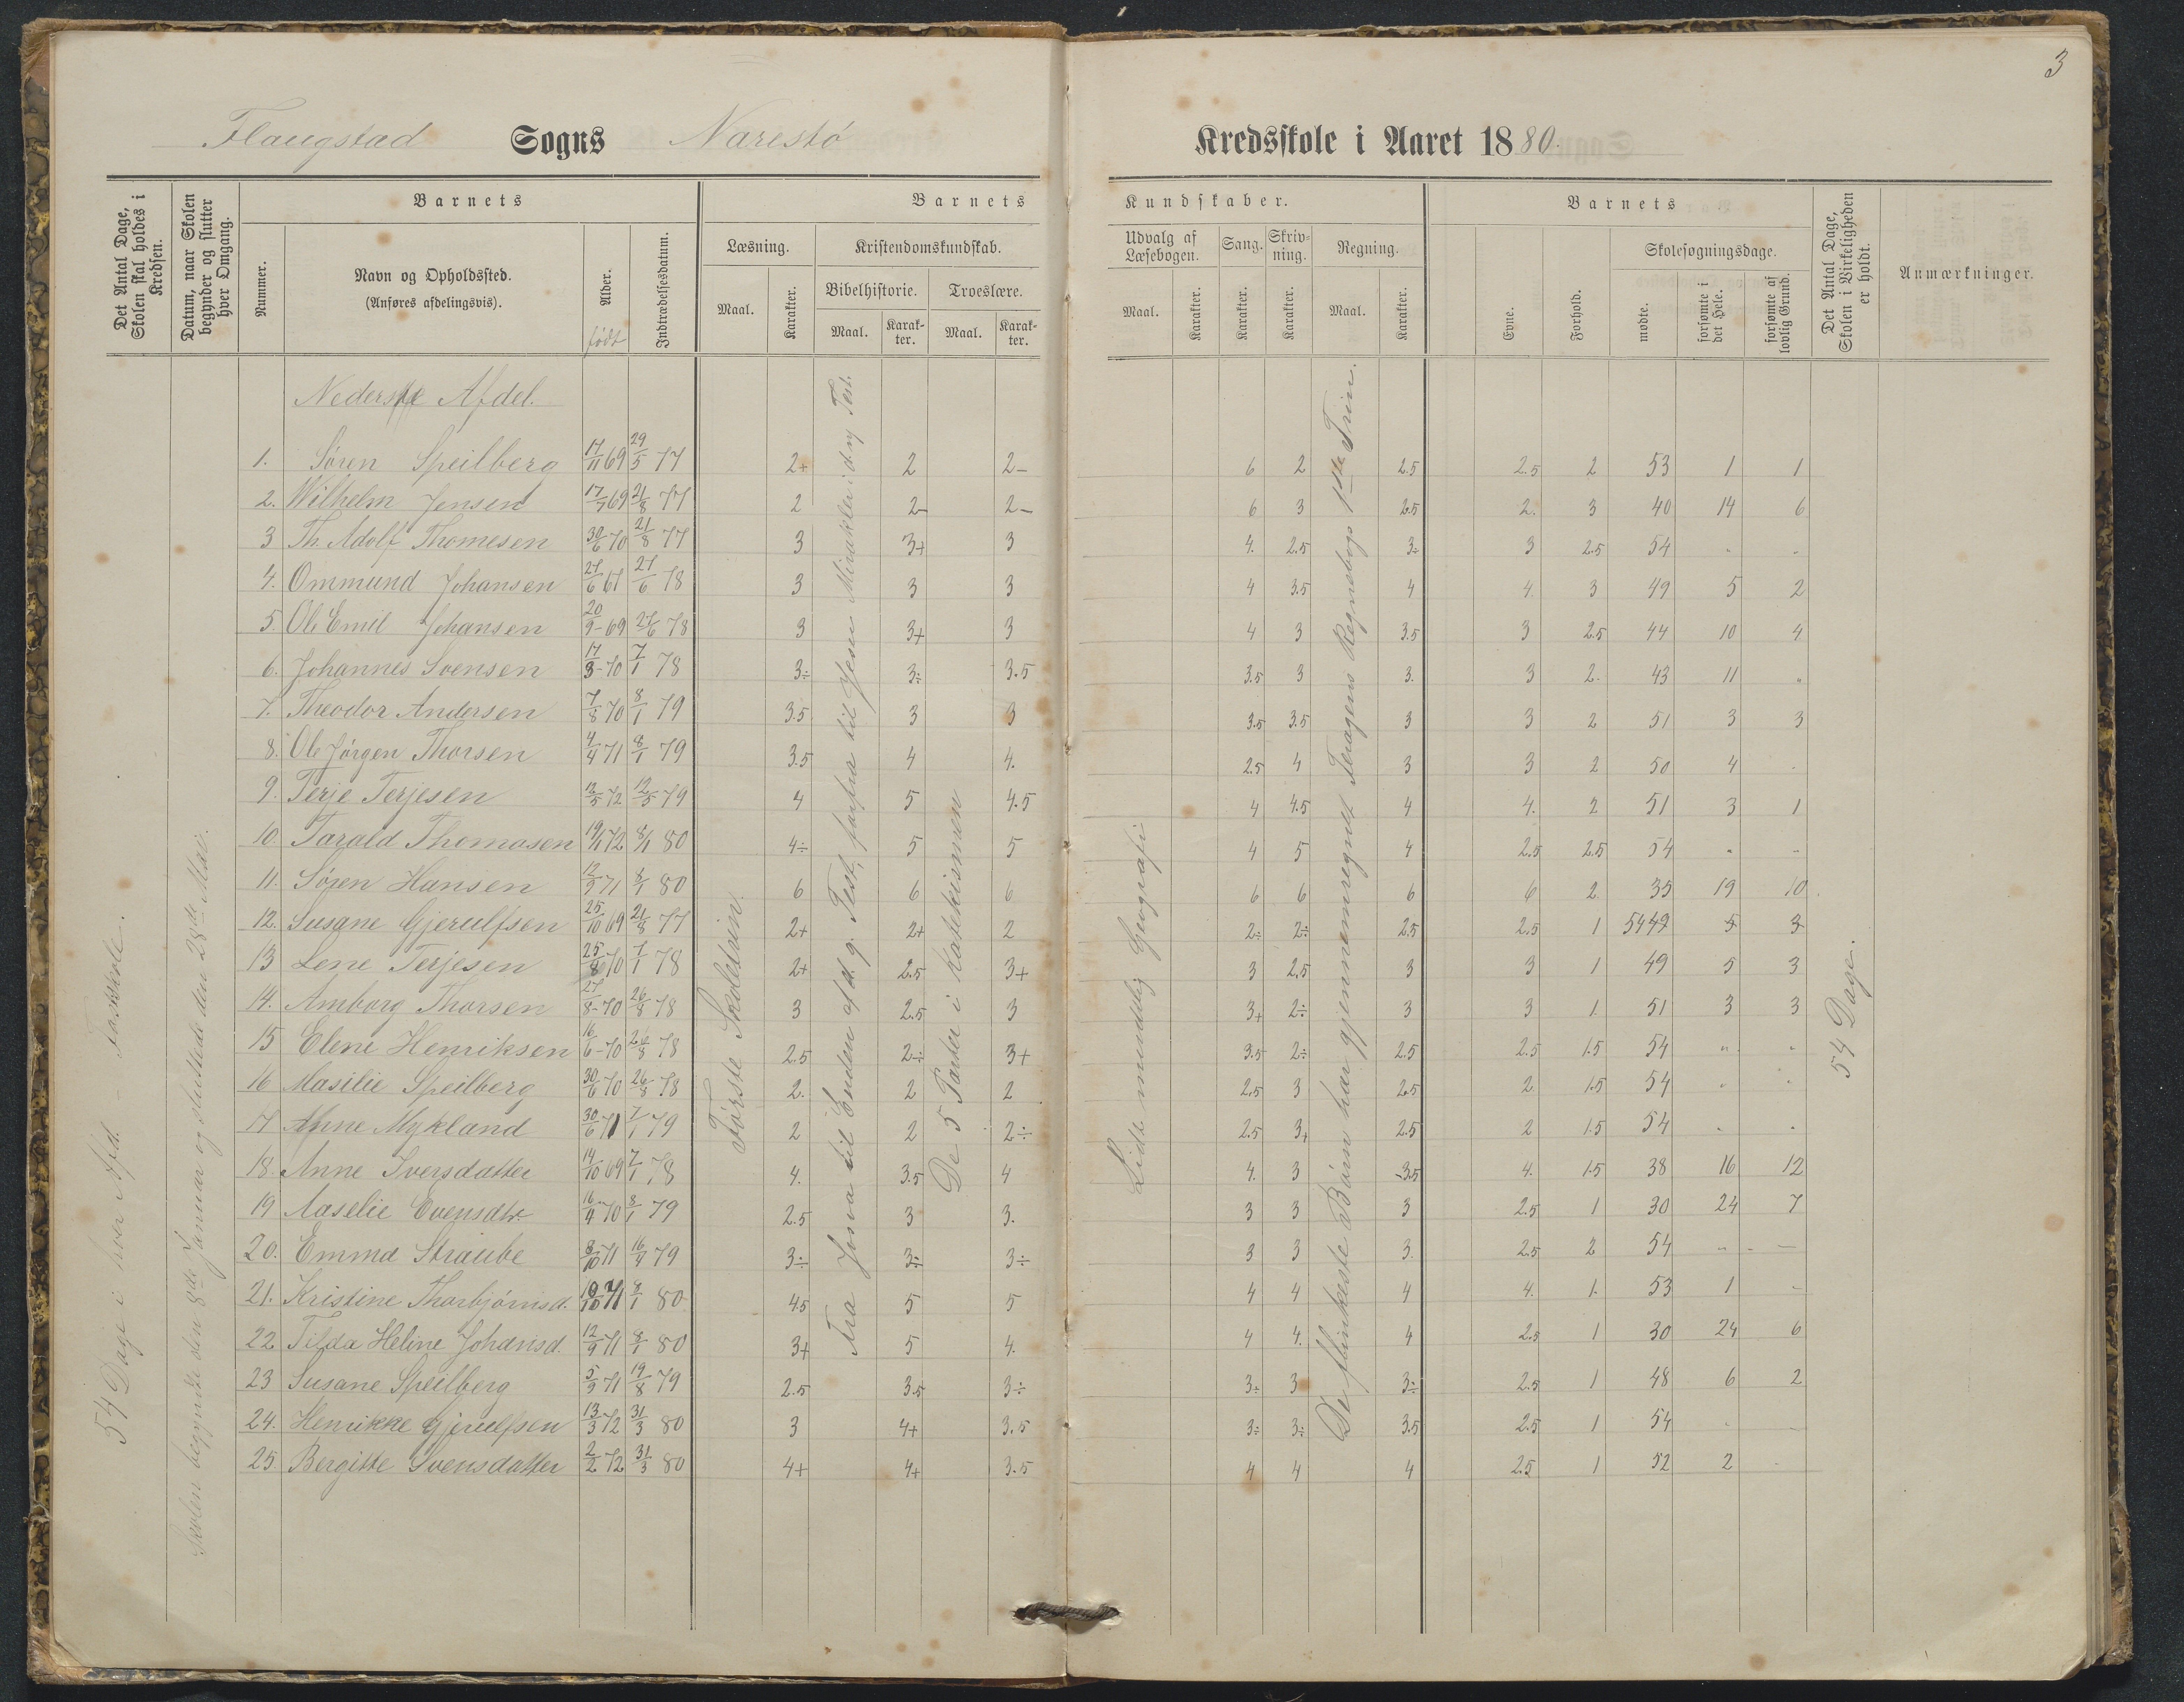 3
Flaugstad Sogns Narestø Kredsskole i Aaret 1880.
Det Antal Dage, Skolen skal holdes i Kredsen.
Datum, naar Skolen begynder og slutter hver Omgang.
Barnets
Nummer.
Navn og Opholdssted.
(Anføres afdelingsvis).
Alder.
født
Indtrædelsesdatum.
Barnets Kundskaber.
Læsning.
Maal. Karakter.
Kristendomskundskab.
Bibelhistorie. Troeslære.
Maal. Karakter. Maal. Karakter.
Udvalg af Læsebogen.
Maal. Karakter.
Sang. Karakter.
Skrivning. Karakter.
Regning.
Maal. Karakter.
Barnets
Evne. Forhold.
Skolesøgningsdage.
mødte. forsømte i det Hele. forsømte af lovlig Grund.
Det Antal Dage, Skolen i Virkeligheden er holdt.
Anmærkninger.
54 Dage i hver Afd. - Fastskole.
Skolen begyndte den 8de Januar og sluttede den 28de Mai.
Første Skoletrin.
Fra Josva til Enden af d. g. Test, forfra til Jesu Mirakler i d. ny Test.
De 5 Parter i Katekismen
Lidt mundtlig Geografi
De flinkeste Børn har gjennemregnet Feragens Regnebogs 1ste Trin.
54 Dage.
Nederste Afdel.
1. Søren Speilberg 17/11 69 29/5 77 2+ 2 2- 6 2 2.5 2.5 2 53 1 1
2. Wilhelm Jensen 17/7 69 21/8 77 2 2- 2- 6 3 2.5 2. 3 40 14 6
3 Th. Adolf Thomesen 30/6 70 21/8 77 3 3+ 3 4. 2.5 3÷ 3 2.5 54 " "
4. Ommund Johansen 27/6 67 27/6 78 3 3 3 4 3.5 4 4. 3 49 5 2
5. Ole Emil Johansen 20/9-69 27/6 78 3 3+ 3 4 3 3.5 3 2.5 44 10 4
6. Johannes Svensen 17/3-70 7/1 78 3÷ 3÷ 3.5 3.5 3 3. 3 2. 43 11 "
7. Theodor Andersen 7/8 70 8/1 79 3.5 3 3 3.5 3.5 3 3 2 51 3 3
8. Ole Jørgen Thorsen 4/4 71 8/1 79 3.5 4 4. 2.5 4 3 3 2 50 4 -
9. Terje Terjesen 12/5 72 12/5 79 4 5 4.5 4 4.5 4 4. 2 51 3 1
10. Tarald Thomasen 19/1 72 8/1 80 4÷ 5 5 4 5 4 2.5 2.5 54 " -
11. Søren Hansen 12/9 71 8/1 80 6 6 6 6 6 6 6 2. 35 19 10
12. Susane Gjerulfsen 25/10 69 21/8 77 2+ 2+ 2 2÷ 2÷ 2.5 2.5 1 5449 5 3
13 Lene Terjesen 25/8 70 7/1 78 2+ 2.5 3+ 3 2.5 3 3 1 49 5 3
14. Amborg Thorsen 27/8-70 26/8 78 3 2.5 3 3+ 2÷ 3 3 1. 51 3 3
15 Elene Henriksen 16/6-70 26/8 78 2.5 2÷ 3+ 3.5 2÷ 2.5 2.5 1.5 54 " "
16 Masilie Speilberg 30/6 70 26/8 78 2. 2 2 2.5 3 2.5 2. 1.5 54 " "
17 Anne Mykland 30/6 71 7/1 79 2 2 2÷ 2.5 3+ 2.5 2 1.5 54 " "
18. Anne Iversdatter 14/10 69 7/1 78 4. 3.5 4 4. 3 3.5 4. 1.5 38 16 12
19 Aaselie Evensdtr. 16/4 70 8/1 79 2.5 3 3. 3 3 3 2.5 1 30 24 7
20. Emma Straube 8/10 71 16/4 79 3÷ 3÷ 3÷ 3 3 3. 2.5 2 54 " -
21. Kristine Thorbjørnsd. 10/10 71 8/1 80 4.5 5 5 4 4 4 4. 1. 53 1 -
22. Tilda Heline Johansd. 12/9 71 8/1 80 3+ 5 4. 4 4. 4 2.5 1 30 24 6
23 Susane Speilberg 5/9 71 19/8 79 2.5 3.5 3÷ 3÷ 3 3÷ 2.5 1 48 6 2
24. Henrikke Gjerulfsen 13/3 72 31/3 80 3 4+ 3.5 3÷ 3÷ 3.5 2.5 1 54 " -
25 Bergitte Svensdatter 2/2 72 31/3 80 4+ 4+ 3.5 4 4 4 2.5 1 52 2 -